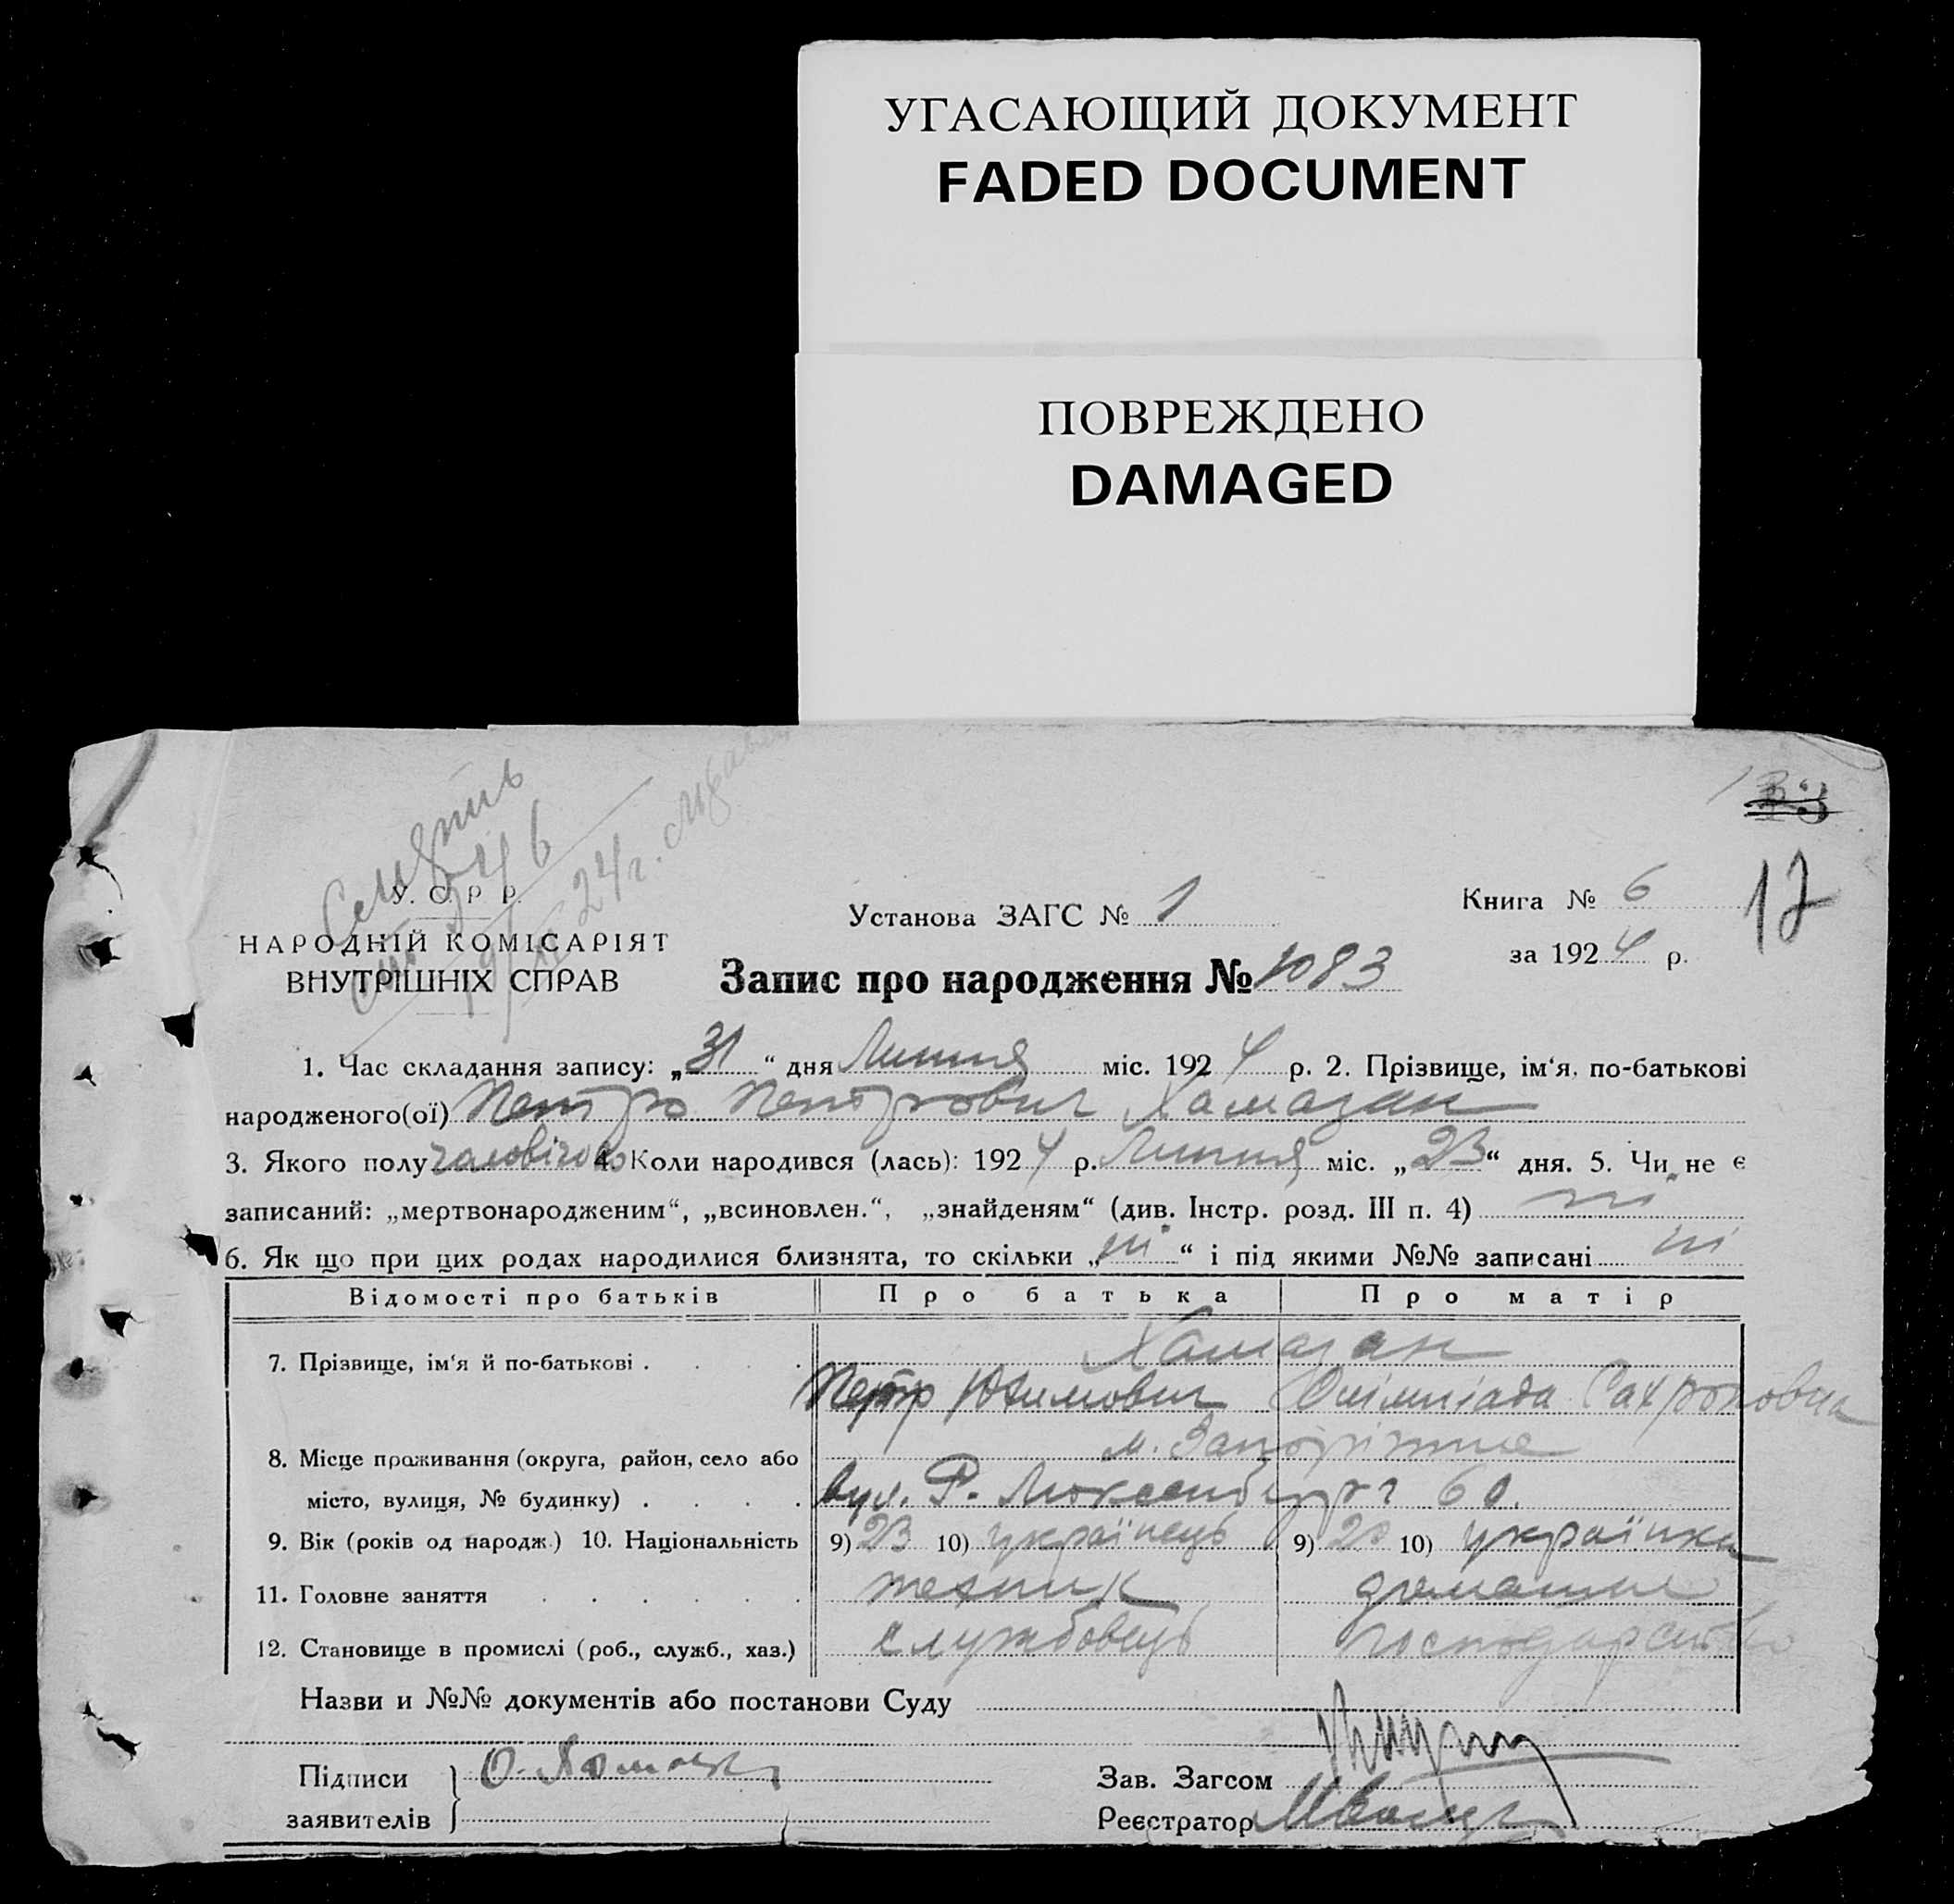 УГАСАЮЩИЙ ДОКУМЕНТ
FADED DOCUMENT
ПОВРЕЖДЕНО
DAMAGED
У. С. Р Р.
НАРОДНІЙ КОМІСАРІЯТ
ВНУТРІШНІХ СПРАВ
Установа ЗАГС № 1
Книга № 6
за 1924 р.
17
Запис про народження № 1083
1. Час складання запису: „31“ дня Липня міс. 1924 р. 2. Прізвище, ім‘я, по-батькові
народженого(ої) Петро Петрович Хамазан
3. Якого полу чоловічого 4. Коли народився (лась): 1924 р. Липня міс. „23“ дня. 5. Чи не є
записаний: „мертвонародженим“, „всиновлен.“, „знайденям“ (див. Інстр. розд. III п. 4) ні
6. Як що при цих родах народилися близнята, то скільки „ні“ і під якими №№ записані ні
Відомості про батьків Про батька Про матір
7. Прізвище, ім‘я й по-батькові . . . . Хамазан
Петр Юхимович Олімпіада Сахроновна
8. Місце проживання (округа, район, село або м. Запоріжжя
місто, вулиця, № будинку) . . . . вул. Р. Люксембург 60.
9. Вік (років од народж.) 10. Національність 9) 23 10) українець 9) 20 10) українка
11. Головне заняття . . . . . . технік домашнє
12. Становище в промислі (роб., служб., хаз.) службовець господарство
Назви и №№ документів або постанови Суду
Підписи
заявителів
Зав. Загсом
Реєстратор